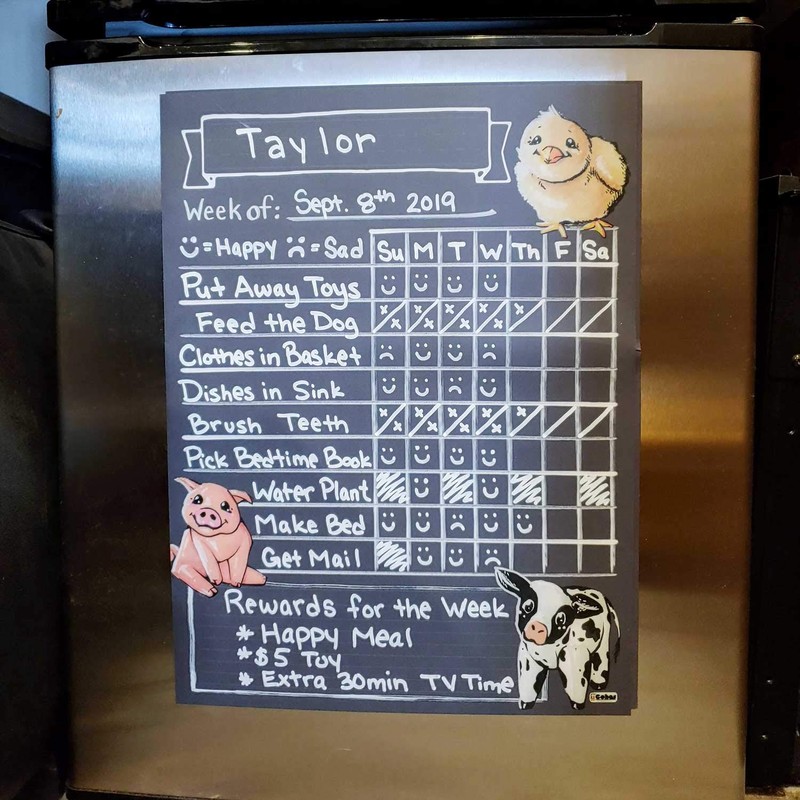 Taylor
Week of: Sept. 8th 2019
☺=Happy ☹=Sad Su M T W Th F Sa
Put Away Toys
Feed the Dog
Clothes in Basket
Dishes in Sink
Brush Teeth
Pick Bedtime Book
Water Plant
Make Bed
Get Mail
Rewards for the Week
* Happy Meal
* $5 Toy
* Extra 30min TV Time